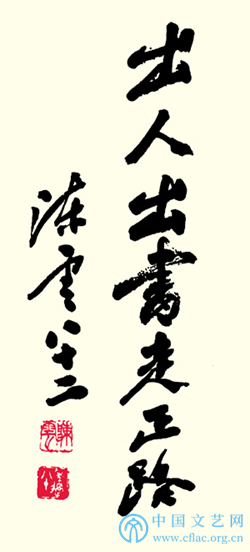 出人出書走正路
陈雲八十二
中国文艺网
www.cflac.org.cn